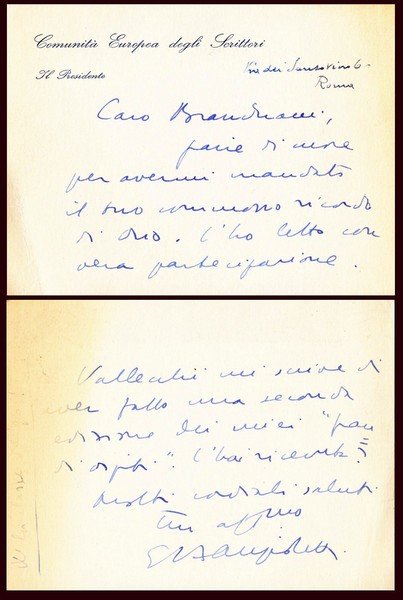 Comunità Europea degli Scrittori
Il Presidente
Via dei Sansovino 6
Roma
Caro
grazie di cuore
per avermi mandato
il tuo commosso ricordo
di . L'ho letto con
vera partecipazione.
Vallecchi mi scrive di
aver fatto una seconda
edizione dei miei "
di ". L'hai ricevuta?
Molti cordiali saluti
tuo aff.mo